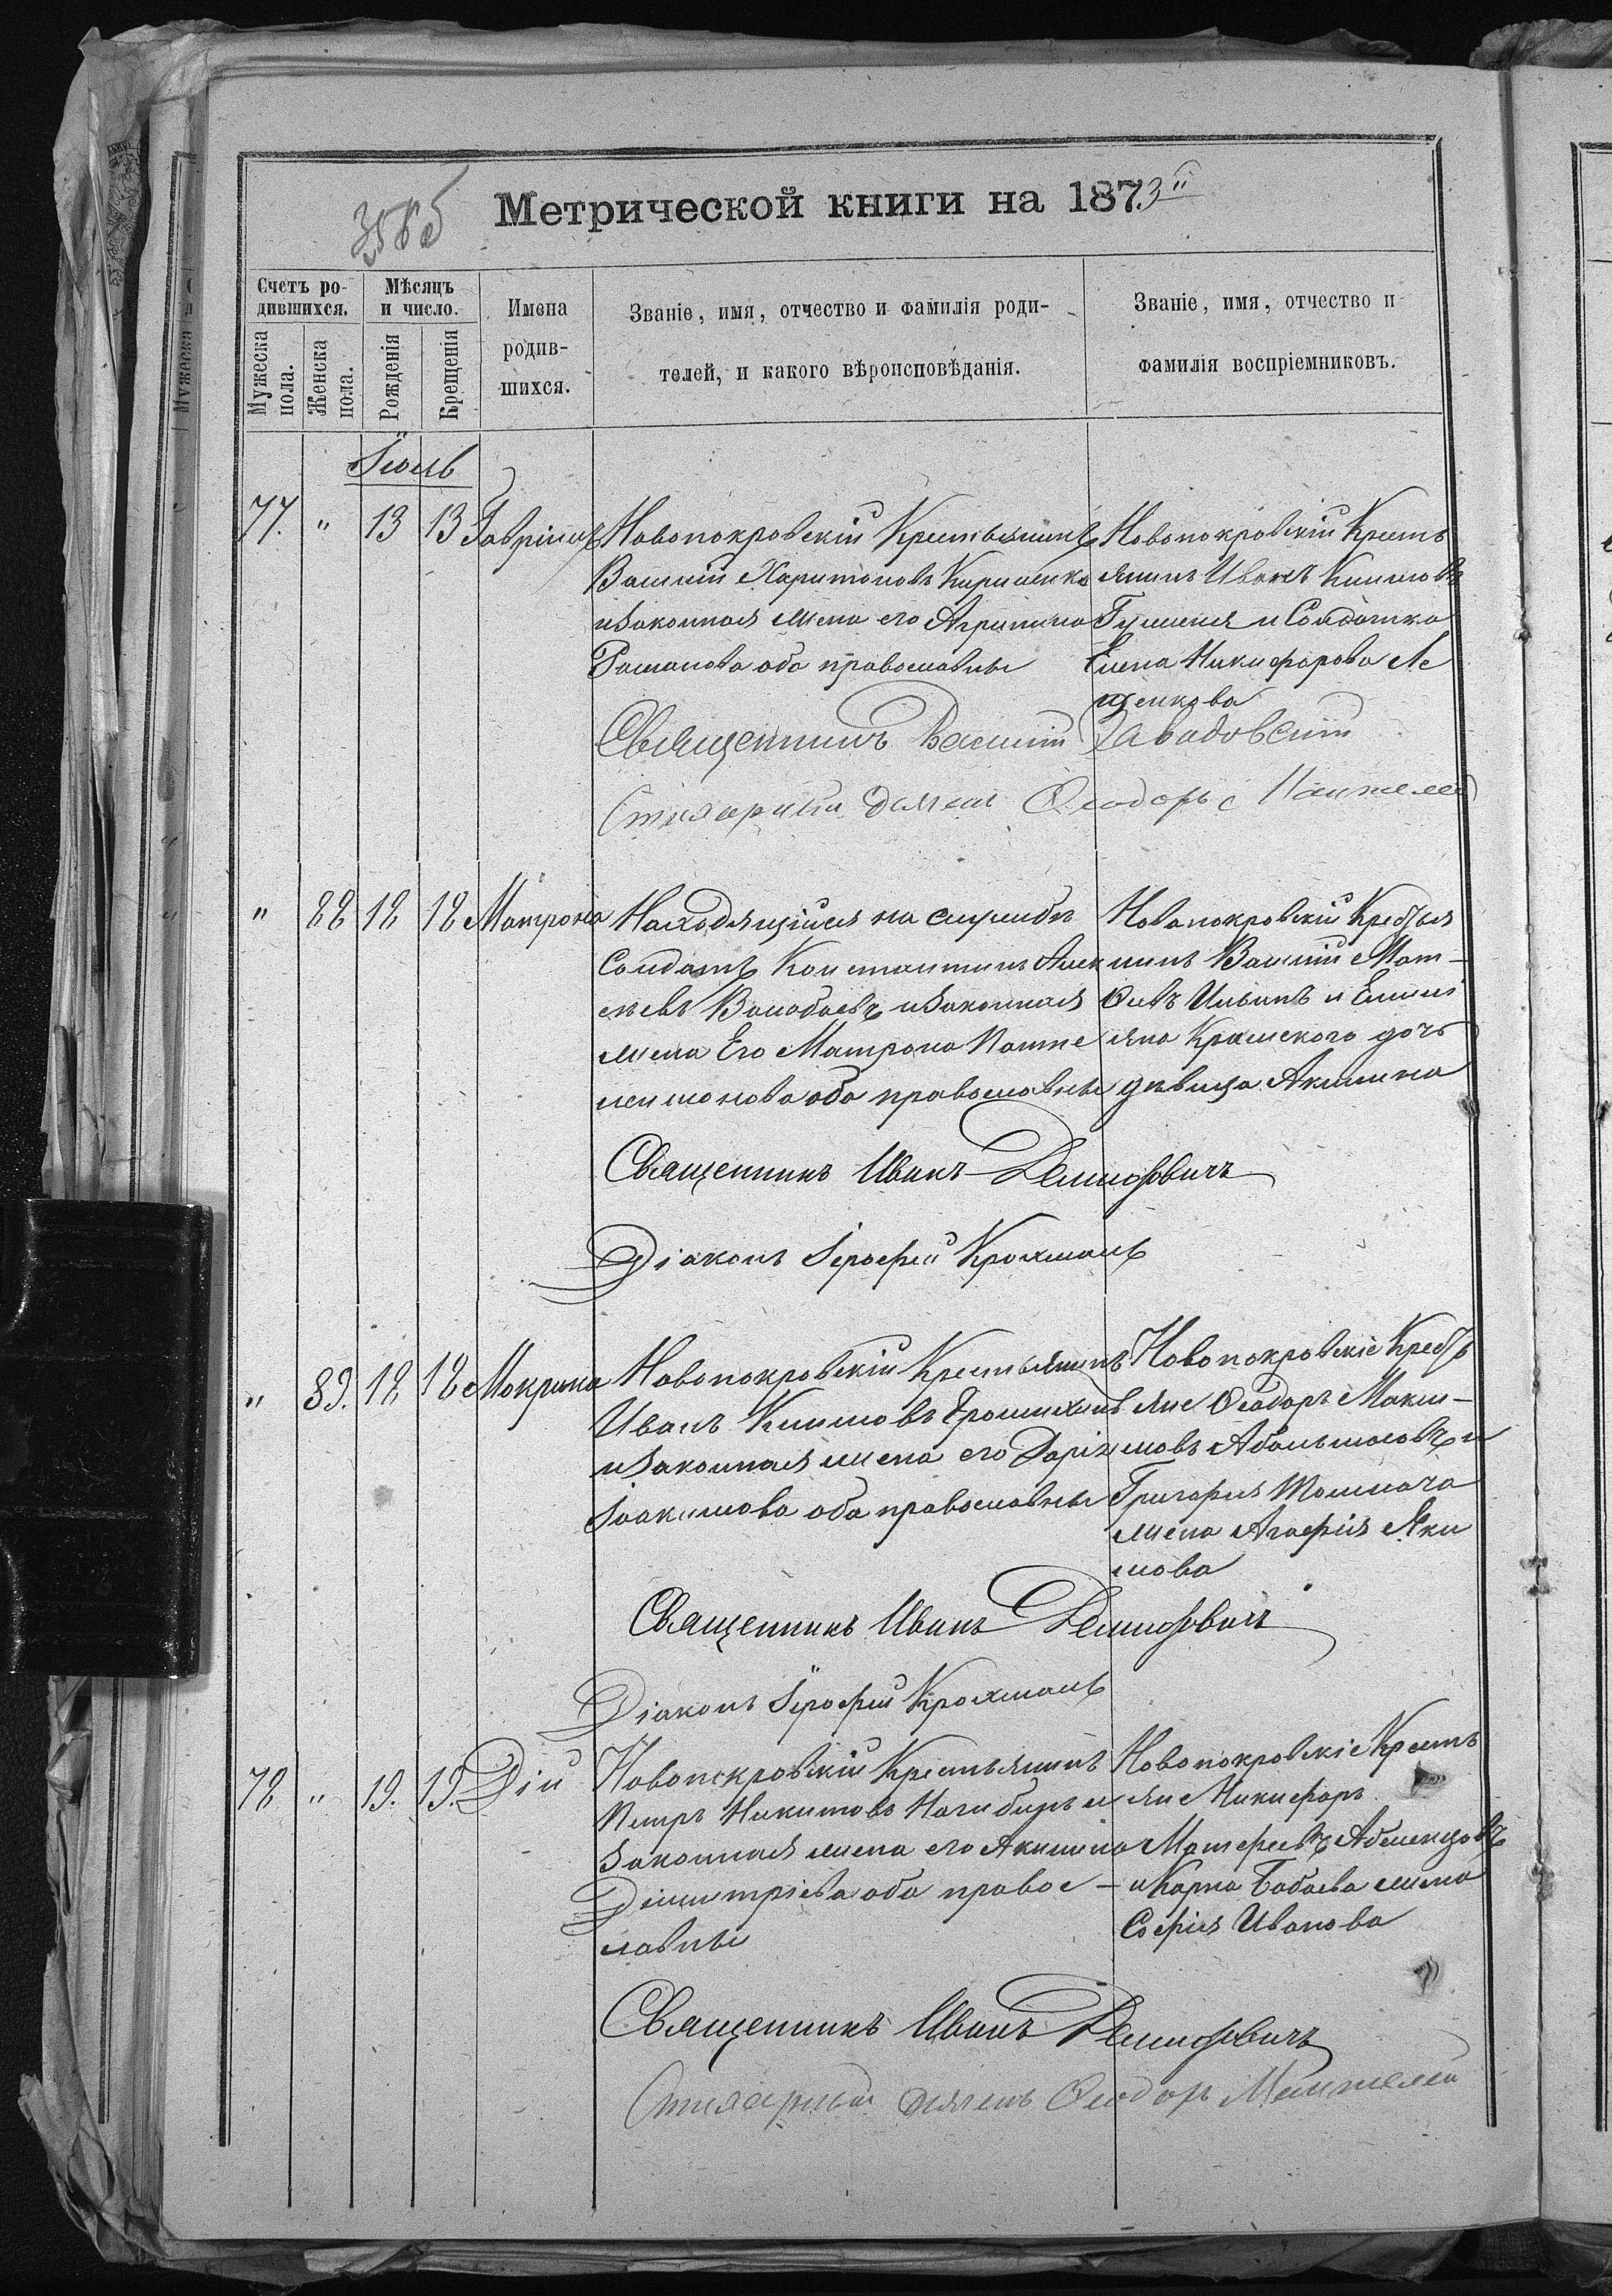 358 б
Метрической книги на 1873й
Счетъ ро-
дившихся.
Мужеска
пола.
Женска
пола.
Мѣсяцъ
и число.
Рожденія
Крещенія
Имена
родив-
шихся.
Званіе, имя, отчество и фамилія роди-
телей, и какого вѣроисповѣданія.
Званіе, имя, отчество и
фамилія воспріемниковъ.
Іюль
77. " 13 13 Гавріилъ
Новопокровскій Крестьянинъ
Василій Харитоновъ Кириленко
и законная жена его Агрипина
Романова оба православные
Новопокровскій Кресть
янинъ Иванъ Климовъ
и Солдатка
Елена Никифорова Ле
щенкова
Священникъ Василій Завадовскій
Стихарный Дьячекъ Ѳеодоръ
" 88 18 18 Матрона
Находящійся на службѣ
Солдатъ Константинъ Алек
сѣевъ и законная
жена Его Матрона Панте
леимонова оба православные
Новопокровскій Крестья
нинъ Василій Мат-
ѳеевъ Ильинъ и Емил
яна Крамского дочь
дѣвица Акилина
Священникъ Иванъ
Діаконъ Іероѳей Крохмаль
" 89. 18 18 Мокрина
Новопокровскій Крестьянинъ
Иванъ Климовъ Ерошихинъ
и законная жена его Дарія
Іоакимова оба православные
Новопокровскіе Кресть
яне Ѳеодоръ Макси-
мовъ и
Григорія Толмача
жена Агафія Яки
мова
Священникъ Иванъ
Діаконъ Іероѳей Крохмаль
78 " 19. 19. Дій
Новопокровскій Крестьянинъ
Петръ Никитовъ Нагибинъ и
законная жена его Акилина
Димитріева оба правос-
лавные
Новопокровскіе Кресть
яне Никифоръ
Матѳеевъ
и Карпа Бабаева жена
Софія Иванова
Священникъ Иванъ
Стихарный Дьячекъ Ѳеодоръ